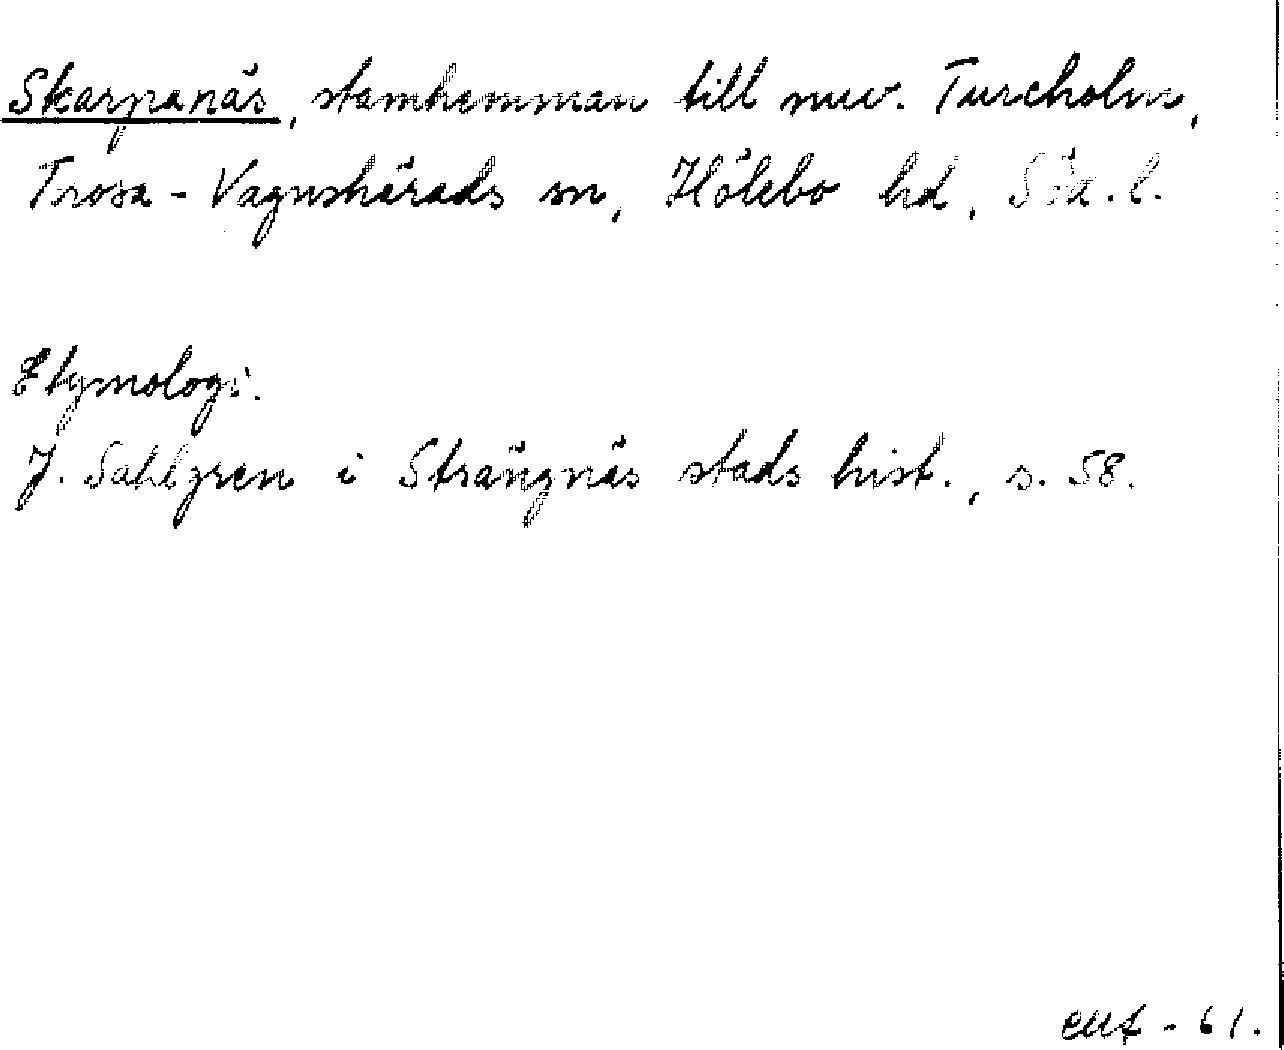 Skarpanäs, stamhemman till nuv. Tureholm,
Trosa - Vagnshärads sn, Hölebo hd, Söd. l.
Etymologi.
J. Sahlgren i Strängnäs stads hist., s. 58.
- 61.